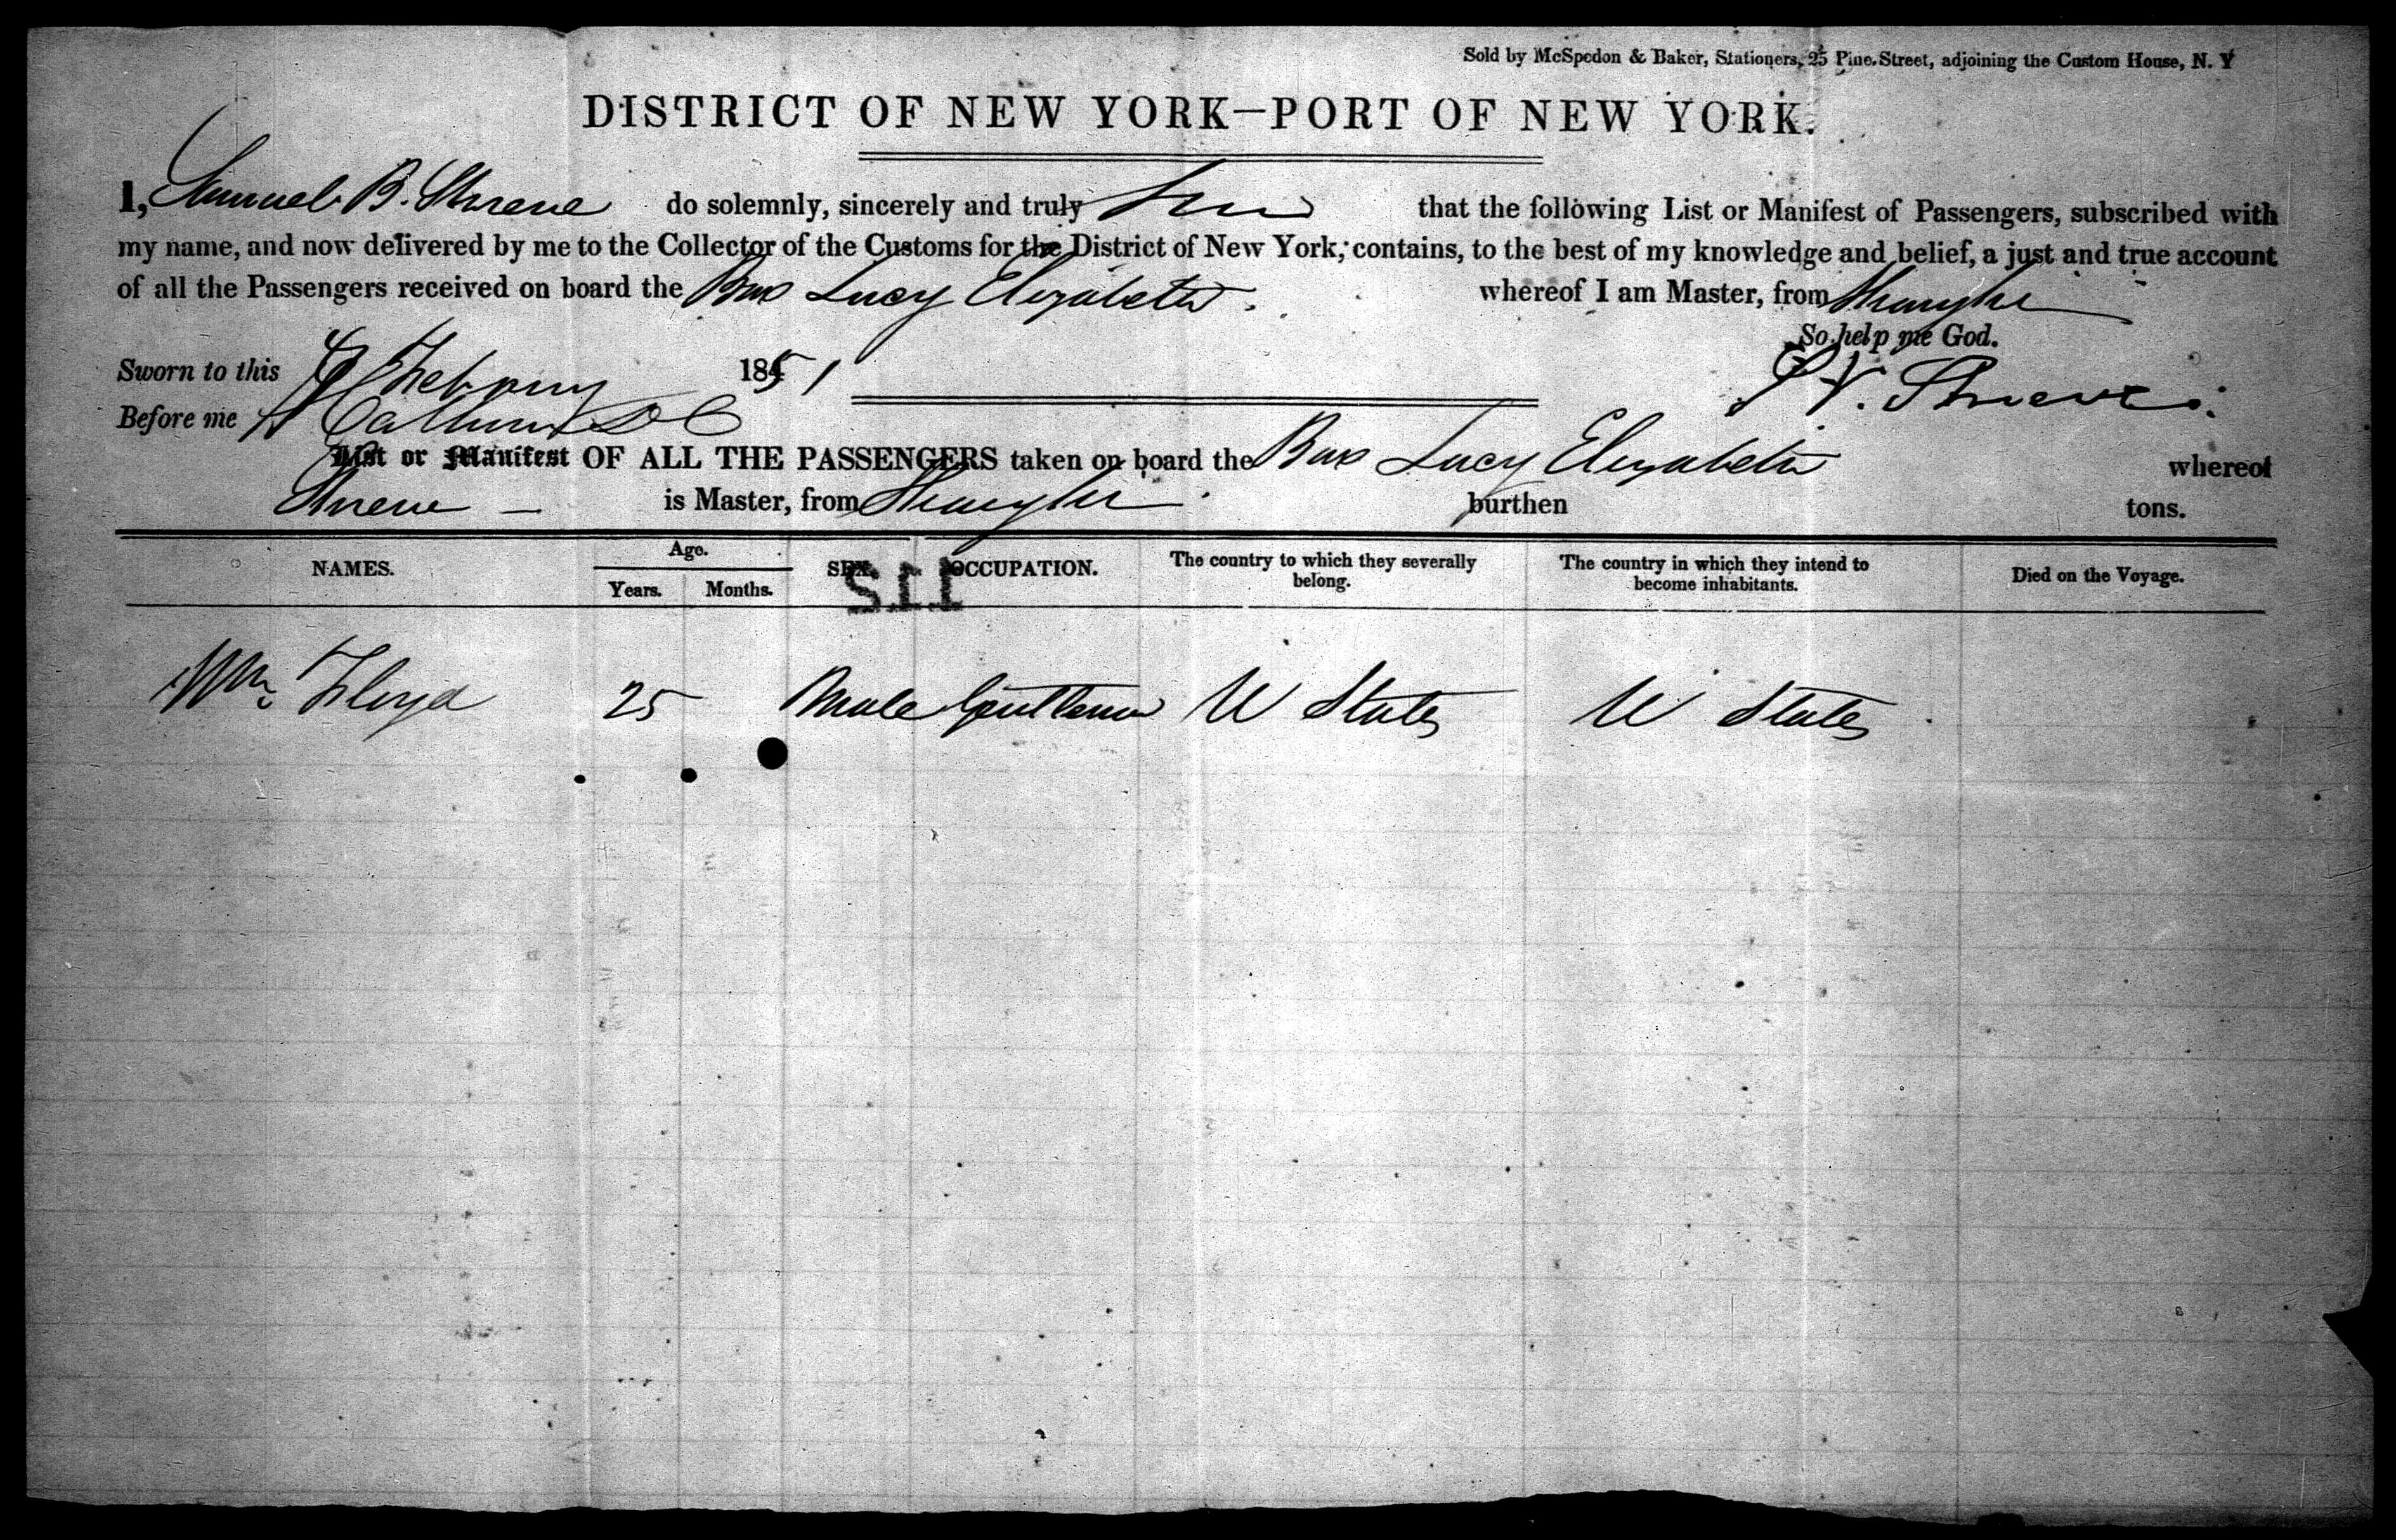 Sold by McSpedon & Baker, Stationers, 25 Pine Street, adjoining the Custom House, N. Y
DISTRICT OF NEW YORK—PORT OF NEW YORK.
I, Samuel B. Shreve do solemnly, sincerely and truly that the following List or Manifest of Passengers, subscribed with
my name, and now delivered by me to the Collector of the Customs for the District of New York, contains, to the best of my knowledge and belief, a just and true account
of all the Passengers received on board the Lucy Elizabeth. whereof I am Master, from Shanghi
So help me God.
Sworn to this 1851
Shreve
Before me
List or Manifest OF ALL THE PASSENGERS taken on board the Lucy Elizabeth whereof
Shreve — is Master, from Shanghi burthen tons.
NAMES. Age. Years. Months. SEX. OCCUPATION. The country to which they severally belong. The country in which they intend to become inhabitants. Died on the Voyage.
112
Wm Floyd 25 Male Gentleman U States U States